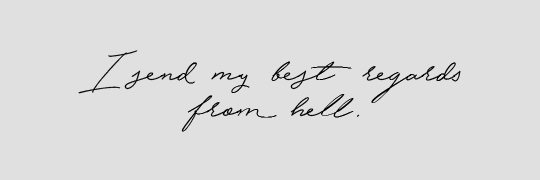 I send my best regards
from hell.